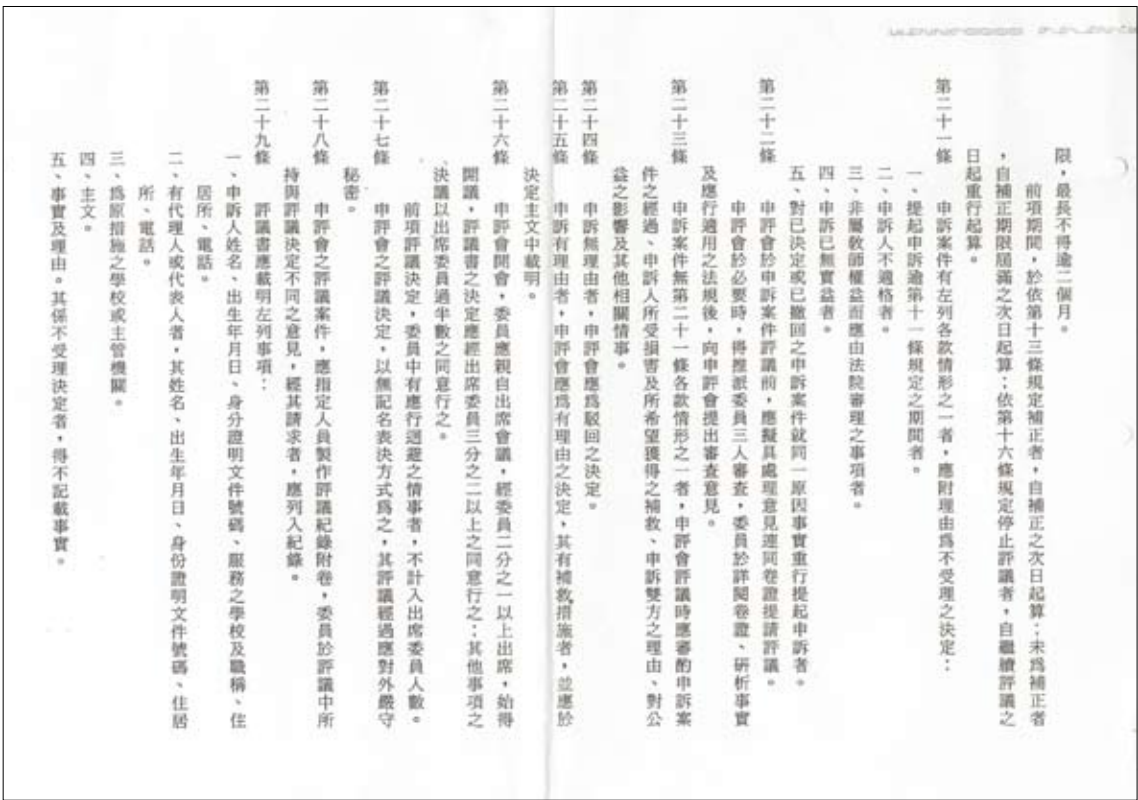 限，最長不得逾二個月。
前項期間，於依第十三條規定補正者，自補正之次日起算；未為補正者
，自補正期限屆滿之次日起算；依第十六條規定停止評議者，自繼續評議之
日起重行起算。
第二十一條　申訴案件有左列各款情形之一者，應附理由為不受理之決定：
一、提起申訴逾第十一條規定之期間者。
二、申訴人不適格者。
三、非屬教師權益而應由法院審理之事項者。
四、申訴已無實益者。
五、對已決定或已撤回之申訴案件就同一原因事實重行提起申訴者。
第二十二條　申評會於申訴案件評議前，應擬具處理意見連同卷證提請評議。
申評會於必要時，得推派委員三人審查，委員於詳閱卷證、研析事實
及應行適用之法規後，向申評會提出審查意見。
第二十三條　申訴案件無第二十一條各款情形之一者，申評會評議時應審酌申訴案
件之經過、申訴人所受損害及所希望獲得之補救、申訴雙方之理由、對公
益之影響及其他相關情事。
第二十四條　申訴無理由者，申評會應為駁回之決定。
第二十五條　申訴有理由者，申評會應為有理由之決定，其有補救措施者，並應於
決定主文中載明。
第二十六條　申評會開會，委員應親自出席會議，經委員二分之一以上出席，始得
開議，評議書之決定應經出席委員三分之二以上之同意行之；其他事項之
決議以出席委員過半數之同意行之。
前項評議決定，委員中有應行迴避之情事者，不計入出席委員人數。
第二十七條　申評會之評議決定，以無記名表決方式為之，其評議經過應對外嚴守
秘密。
第二十八條　申評會之評議案件，應指定人員製作評議紀錄附卷，委員於評議中所
持與評議決定不同之意見，經其請求者，應列入紀錄。
第二十九條　評議書應載明左列事項：
一、申訴人姓名、出生年月日、身分證明文件號碼、服務之學校及職稱、住
居所、電話。
二、有代理人或代表人者，其姓名、出生年月日、身份證明文件號碼、住居
所、電話。
三、為原措施之學校或主管機關。
四、主文。
五、事實及理由。其係不受理決定者，得不記載事實。